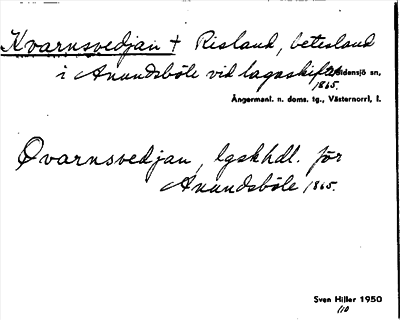 Kvarnsvedjan † Risland, betesland
i Anundsböle vid lagaskiftet Sidensjö sn,
1865.
Ångermanl. n. doms. tg., Västernorrl. l.
Qvarnsvedjan, lgskhdl. för
Anundsböle 1865.
Sven Hiller 1950
110